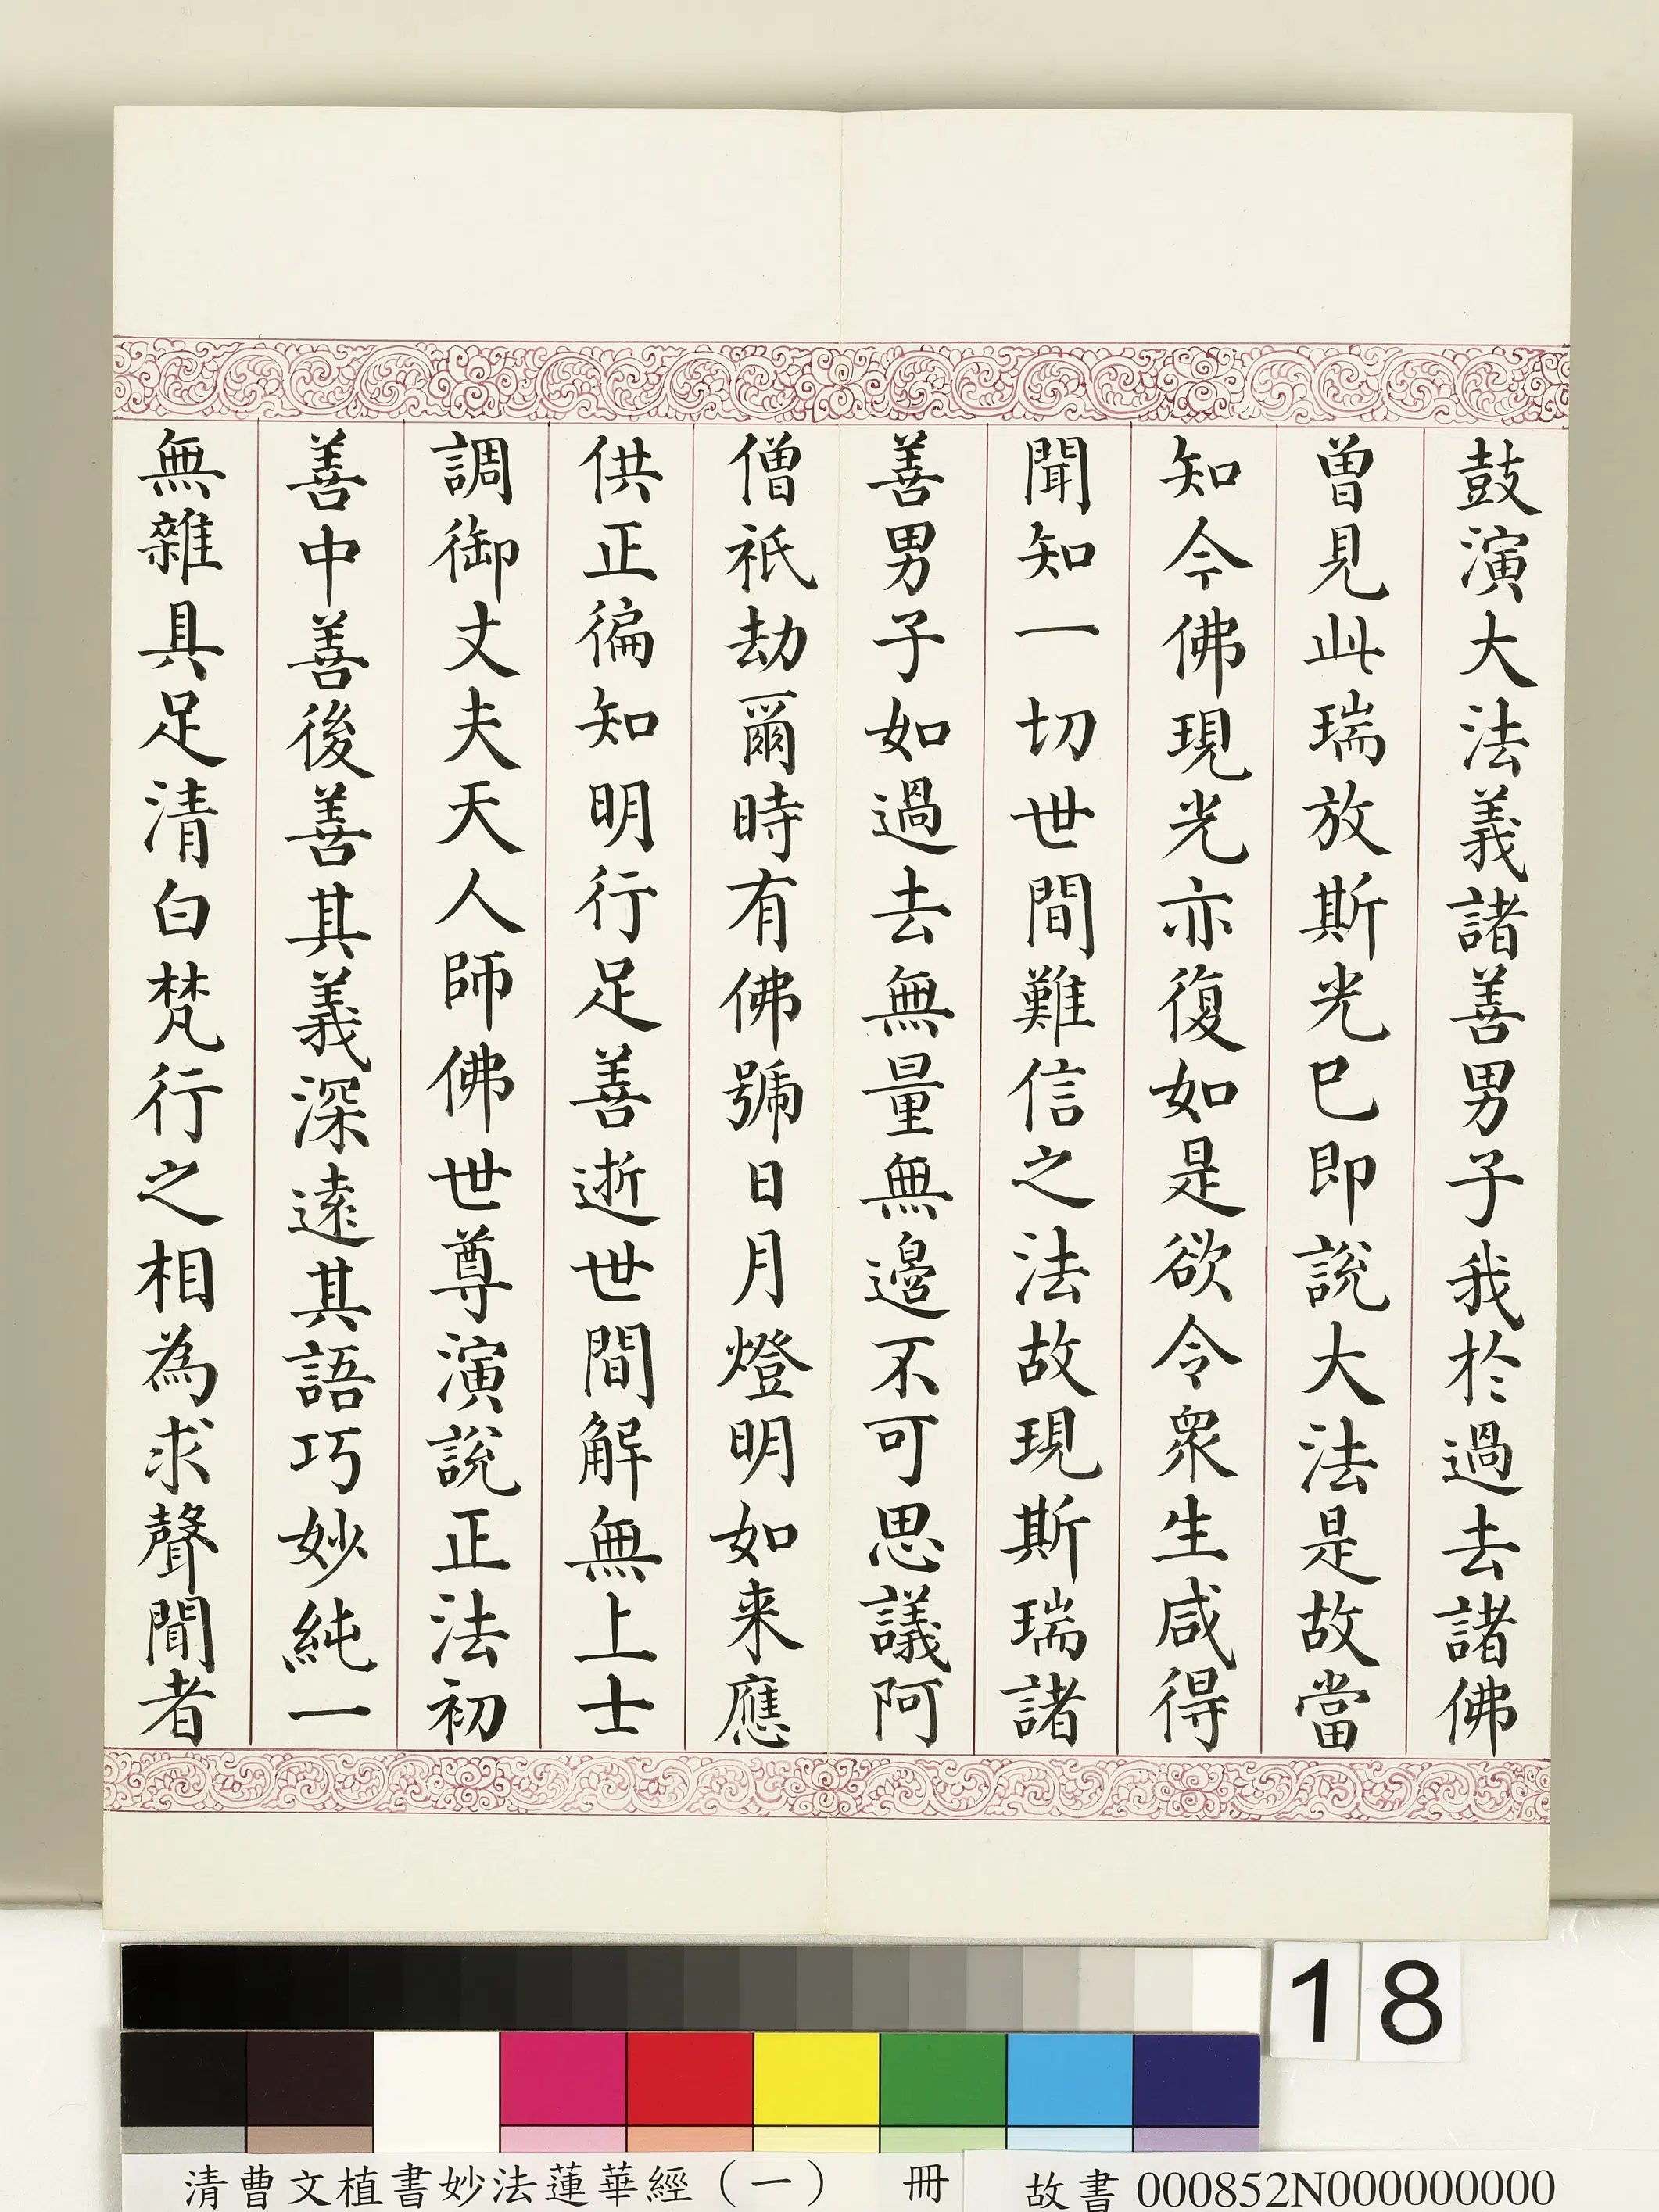 鼓演大法義諸善男子我於過去諸佛
曽見此瑞放斯光已即說大法是故當
知今佛現光亦復如是欲令衆生咸得
聞知一切世間難信之法故現斯瑞諸
善男子如過去無量無邊不可思議阿
僧祇劫爾時有佛號日月燈明如来應
供正徧知明行足善逝世間解無上士
調御丈夫天人師佛世尊演說正法初
善中善後善其義深遠其語巧妙純一
無雜具足清白梵行之相為求聲聞者
18
清曹文植書妙法蓮華經（一） 冊
故書000852N000000000